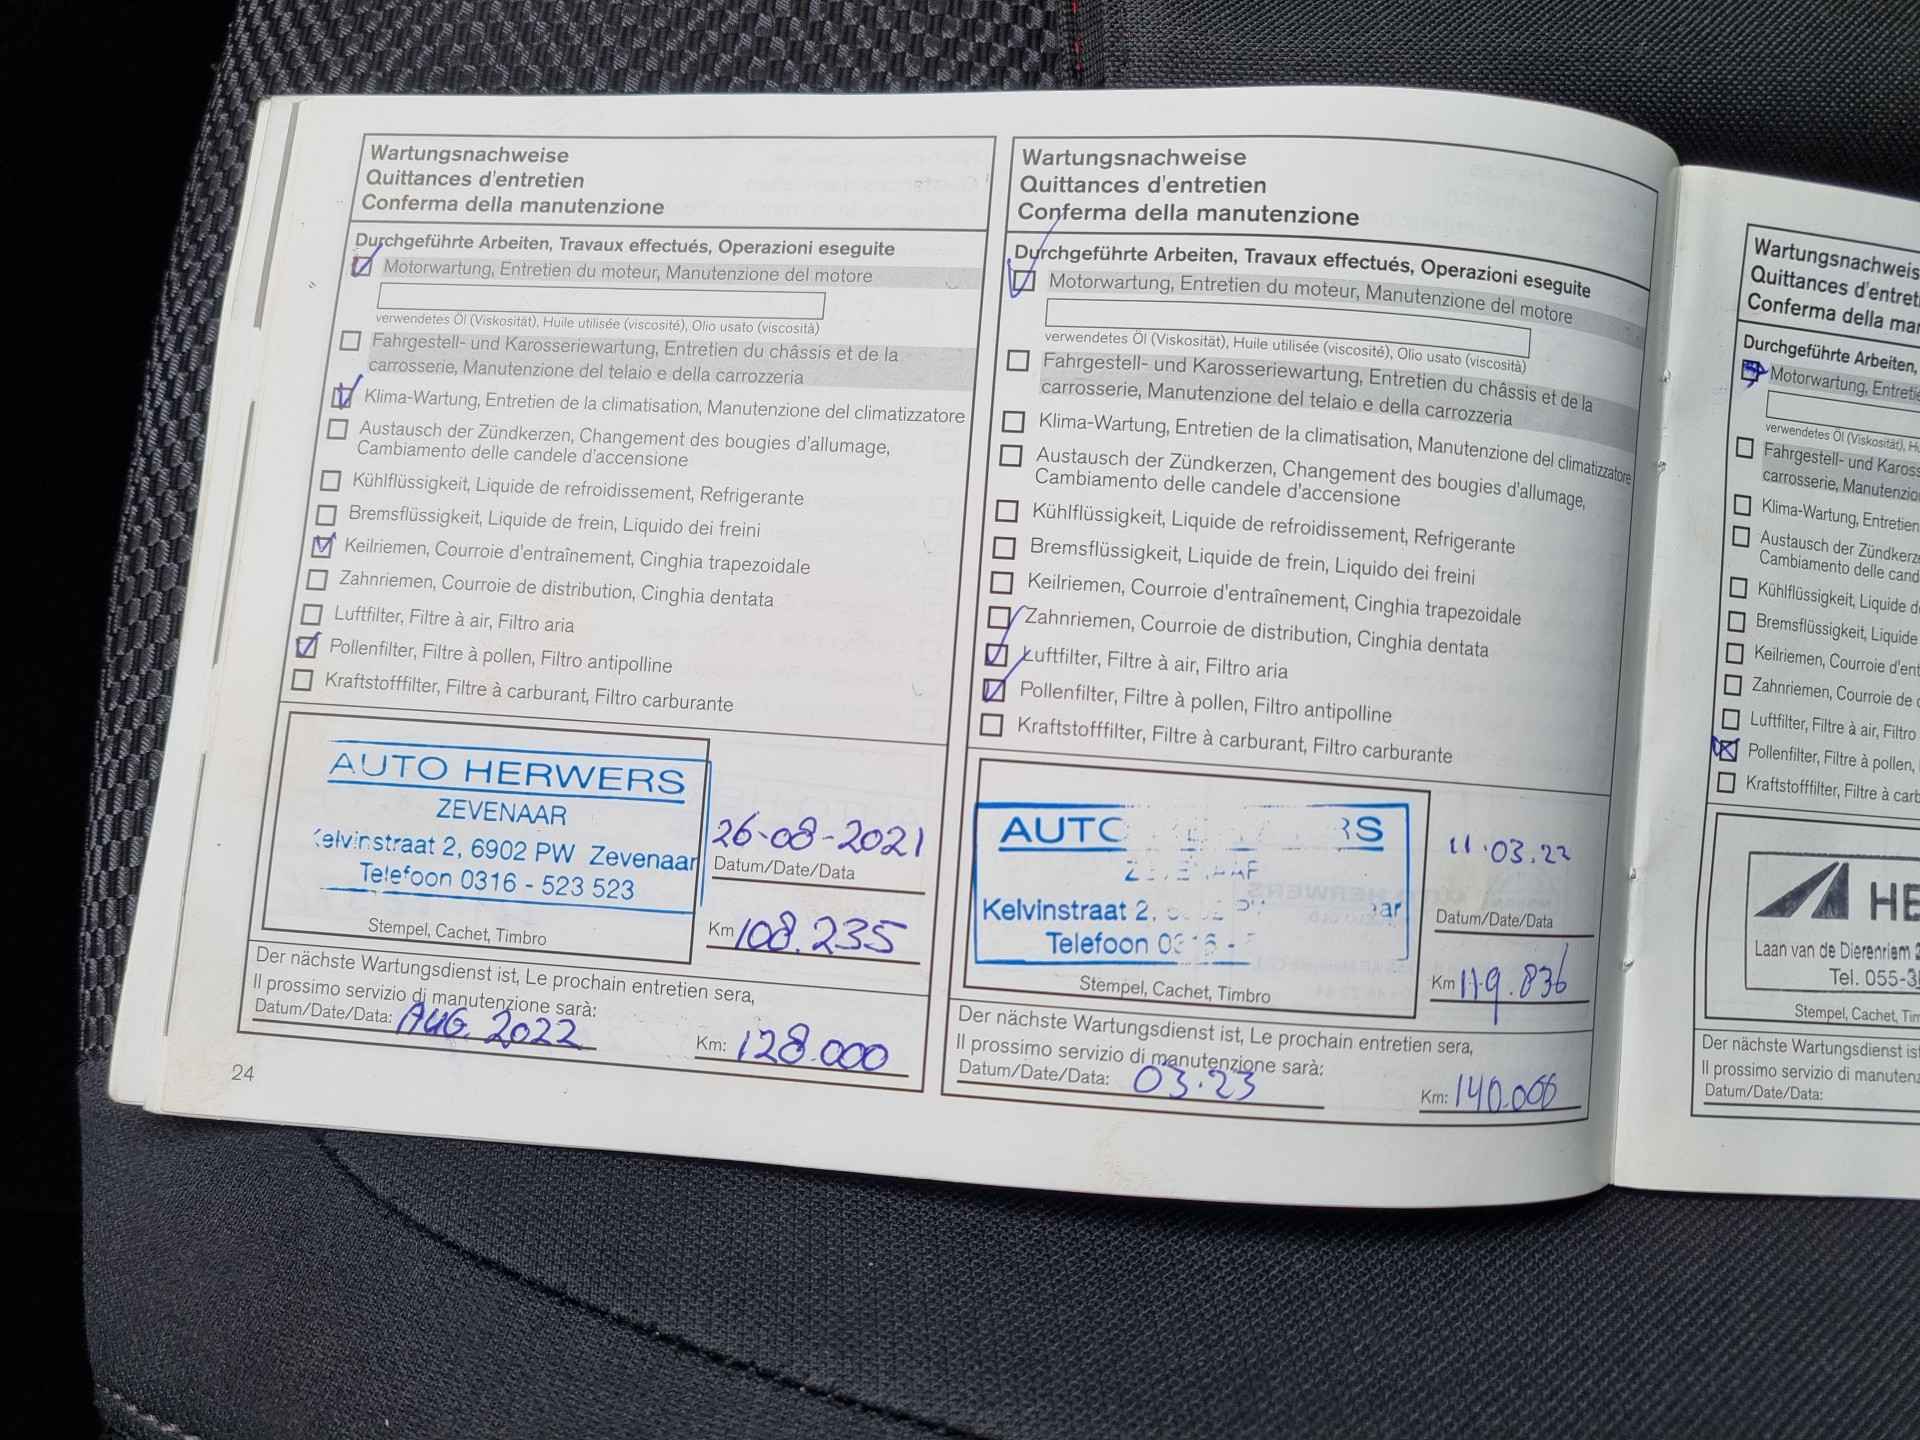 Wartungsnachweise
Quittances d'entretien
Conferma della manutenzione
Durchgeführte Arbeiten, Travaux effectués, Operazioni eseguite
Motorwartung, Entretien du moteur, Manutenzione del motore
verwendetes Öl (Viskosität), Huile utilisée (viscosité), Olio usato (viscosità)
Fahrgestell- und Karosseriewartung, Entretien du châssis et de la
carrosserie, Manutenzione del telaio e della carrozzeria
Klima-Wartung, Entretien de la climatisation, Manutenzione del climatizzatore
Austausch der Zündkerzen, Changement des bougies d'allumage,
Cambiamento delle candele d'accensione
Kühlflüssigkeit, Liquide de refroidissement, Refrigerante
Bremsflüssigkeit, Liquide de frein, Liquido dei freini
Keilriemen, Courroie d'entraînement, Cinghia trapezoidale
Zahnriemen, Courroie de distribution, Cinghia dentata
Luftfilter, Filtre à air, Filtro aria
Pollenfilter, Filtre à pollen, Filtro antipolline
Kraftstofffilter, Filtre à carburant, Filtro carburante
AUTO HERWERS
ZEVENAAR
Kelvinstraat 2, 6902 PW Zevenaar
Telefoon 0316 - 523 523
Stempel, Cachet, Timbro
26-08-2021
Datum/Date/Data
Km 108.235
Der nächste Wartungsdienst ist, Le prochain entretien sera,
Il prossimo servizio di manutenzione sarà:
Datum/Date/Data: AUG. 2022 Km: 128.000
24
Wartungsnachweise
Quittances d'entretien
Conferma della manutenzione
Durchgeführte Arbeiten, Travaux effectués, Operazioni eseguite
Motorwartung, Entretien du moteur, Manutenzione del motore
verwendetes Öl (Viskosität), Huile utilisée (viscosité), Olio usato (viscosità)
Fahrgestell- und Karosseriewartung, Entretien du châssis et de la
carrosserie, Manutenzione del telaio e della carrozzeria
Klima-Wartung, Entretien de la climatisation, Manutenzione del climatizzatore
Austausch der Zündkerzen, Changement des bougies d'allumage,
Cambiamento delle candele d'accensione
Kühlflüssigkeit, Liquide de refroidissement, Refrigerante
Bremsflüssigkeit, Liquide de frein, Liquido dei freini
Keilriemen, Courroie d'entraînement, Cinghia trapezoidale
Zahnriemen, Courroie de distribution, Cinghia dentata
Luftfilter, Filtre à air, Filtro aria
Pollenfilter, Filtre à pollen, Filtro antipolline
Kraftstofffilter, Filtre à carburant, Filtro carburante
AUTO
Kelvinstraat 2,
Telefoon
Stempel, Cachet, Timbro
11.03.22
Datum/Date/Data
Km 119.836
Der nächste Wartungsdienst ist, Le prochain entretien sera,
Il prossimo servizio di manutenzione sarà:
Datum/Date/Data: 03.23 Km: 140.000
Wartungsnachweis
Quittances d'entret
Conferma della ma
Durchgeführte Arbeiten,
Motorwartung, Entretie
verwendetes Öl (Viskosität), H
Fahrgestell- und Kaross
carrosserie, Manutenzio
Klima-Wartung, Entretien
Austausch der Zündkerze
Cambiamento delle cand
Kühlflüssigkeit, Liquide d
Bremsflüssigkeit, Liquide
Keilriemen, Courroie d'ent
Zahnriemen, Courroie de
Luftfilter, Filtre à air, Filtro
Pollenfilter, Filtre à pollen,
Kraftstofffilter, Filtre à carb
HE
Laan van de Dierenriem 2
Tel. 055-3
Stempel, Cachet, Tim
Der nächste Wartungsdienst ist
Il prossimo servizio di manutenz
Datum/Date/Data: